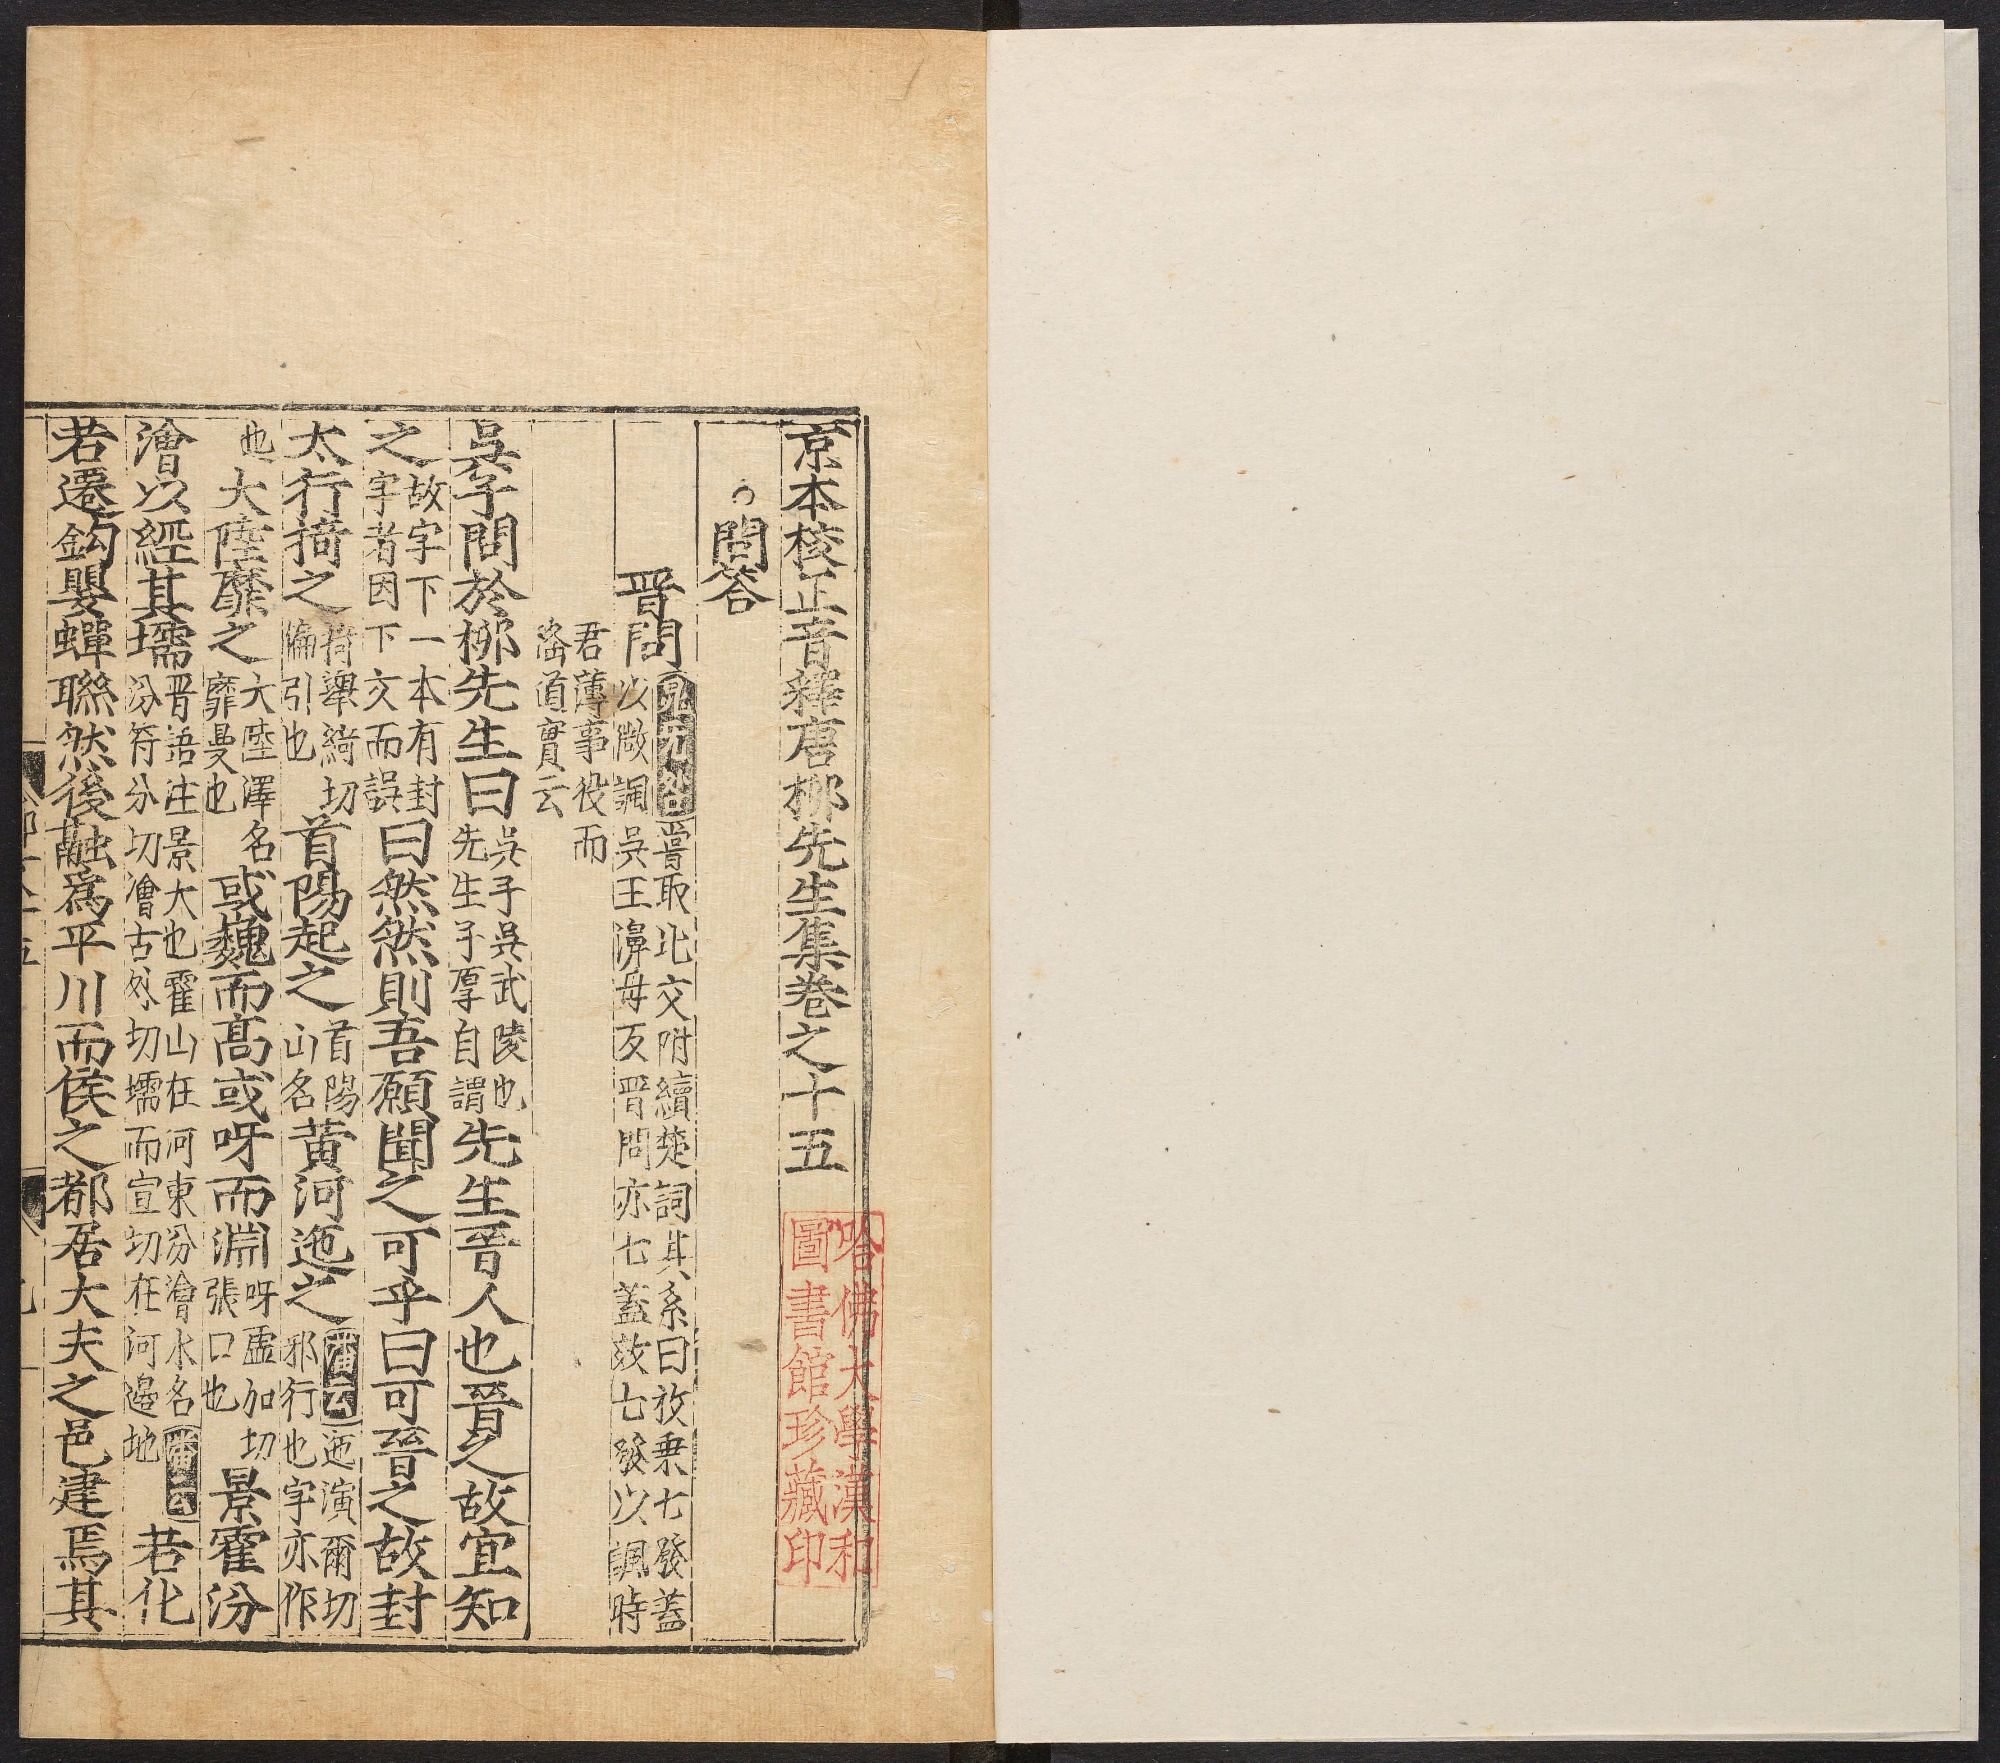 京本校正音釋唐柳先生集卷之十五
哈佛大學漢和
圖書館珍藏印
問答
晉問
晁無咎嘗取此文附續楚詞其系曰放乗七發蓋
以微諷吳王濞毋反晋問亦七蓋效七發以諷時
君薄事役而
崇道實云
吳子問於栁先生曰
吴子吴武陵也
先生子厚自謂
先生晉人也晉之故宜知
之
故字下一本有封
字者因下文而誤
曰然然則吾願聞之可乎曰可晉之故封
太行掎之
掎舉綺切
偏引也
首陽起之
首陽
山名
黄河迤之
潘云迤演爾切
邪行也字亦作
也
大陸靡之
大陸澤名
靡曼也
或巍而髙或呀而淵
呀虛加切
張口也
景霍汾
澮以經其壖
晋語注景大也霍山在河東汾澮水名潘云
汾符分切澮古外切壖而宣切在河邉地
若化
若遷鈎嬰蟬聮然後融爲平川而侯之都居大夫之邑建焉其